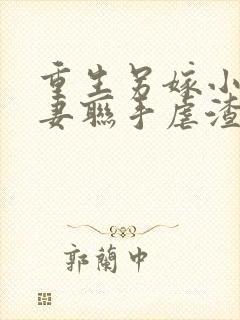 重生另嫁小
妻聯手虐渣
郭蘭中